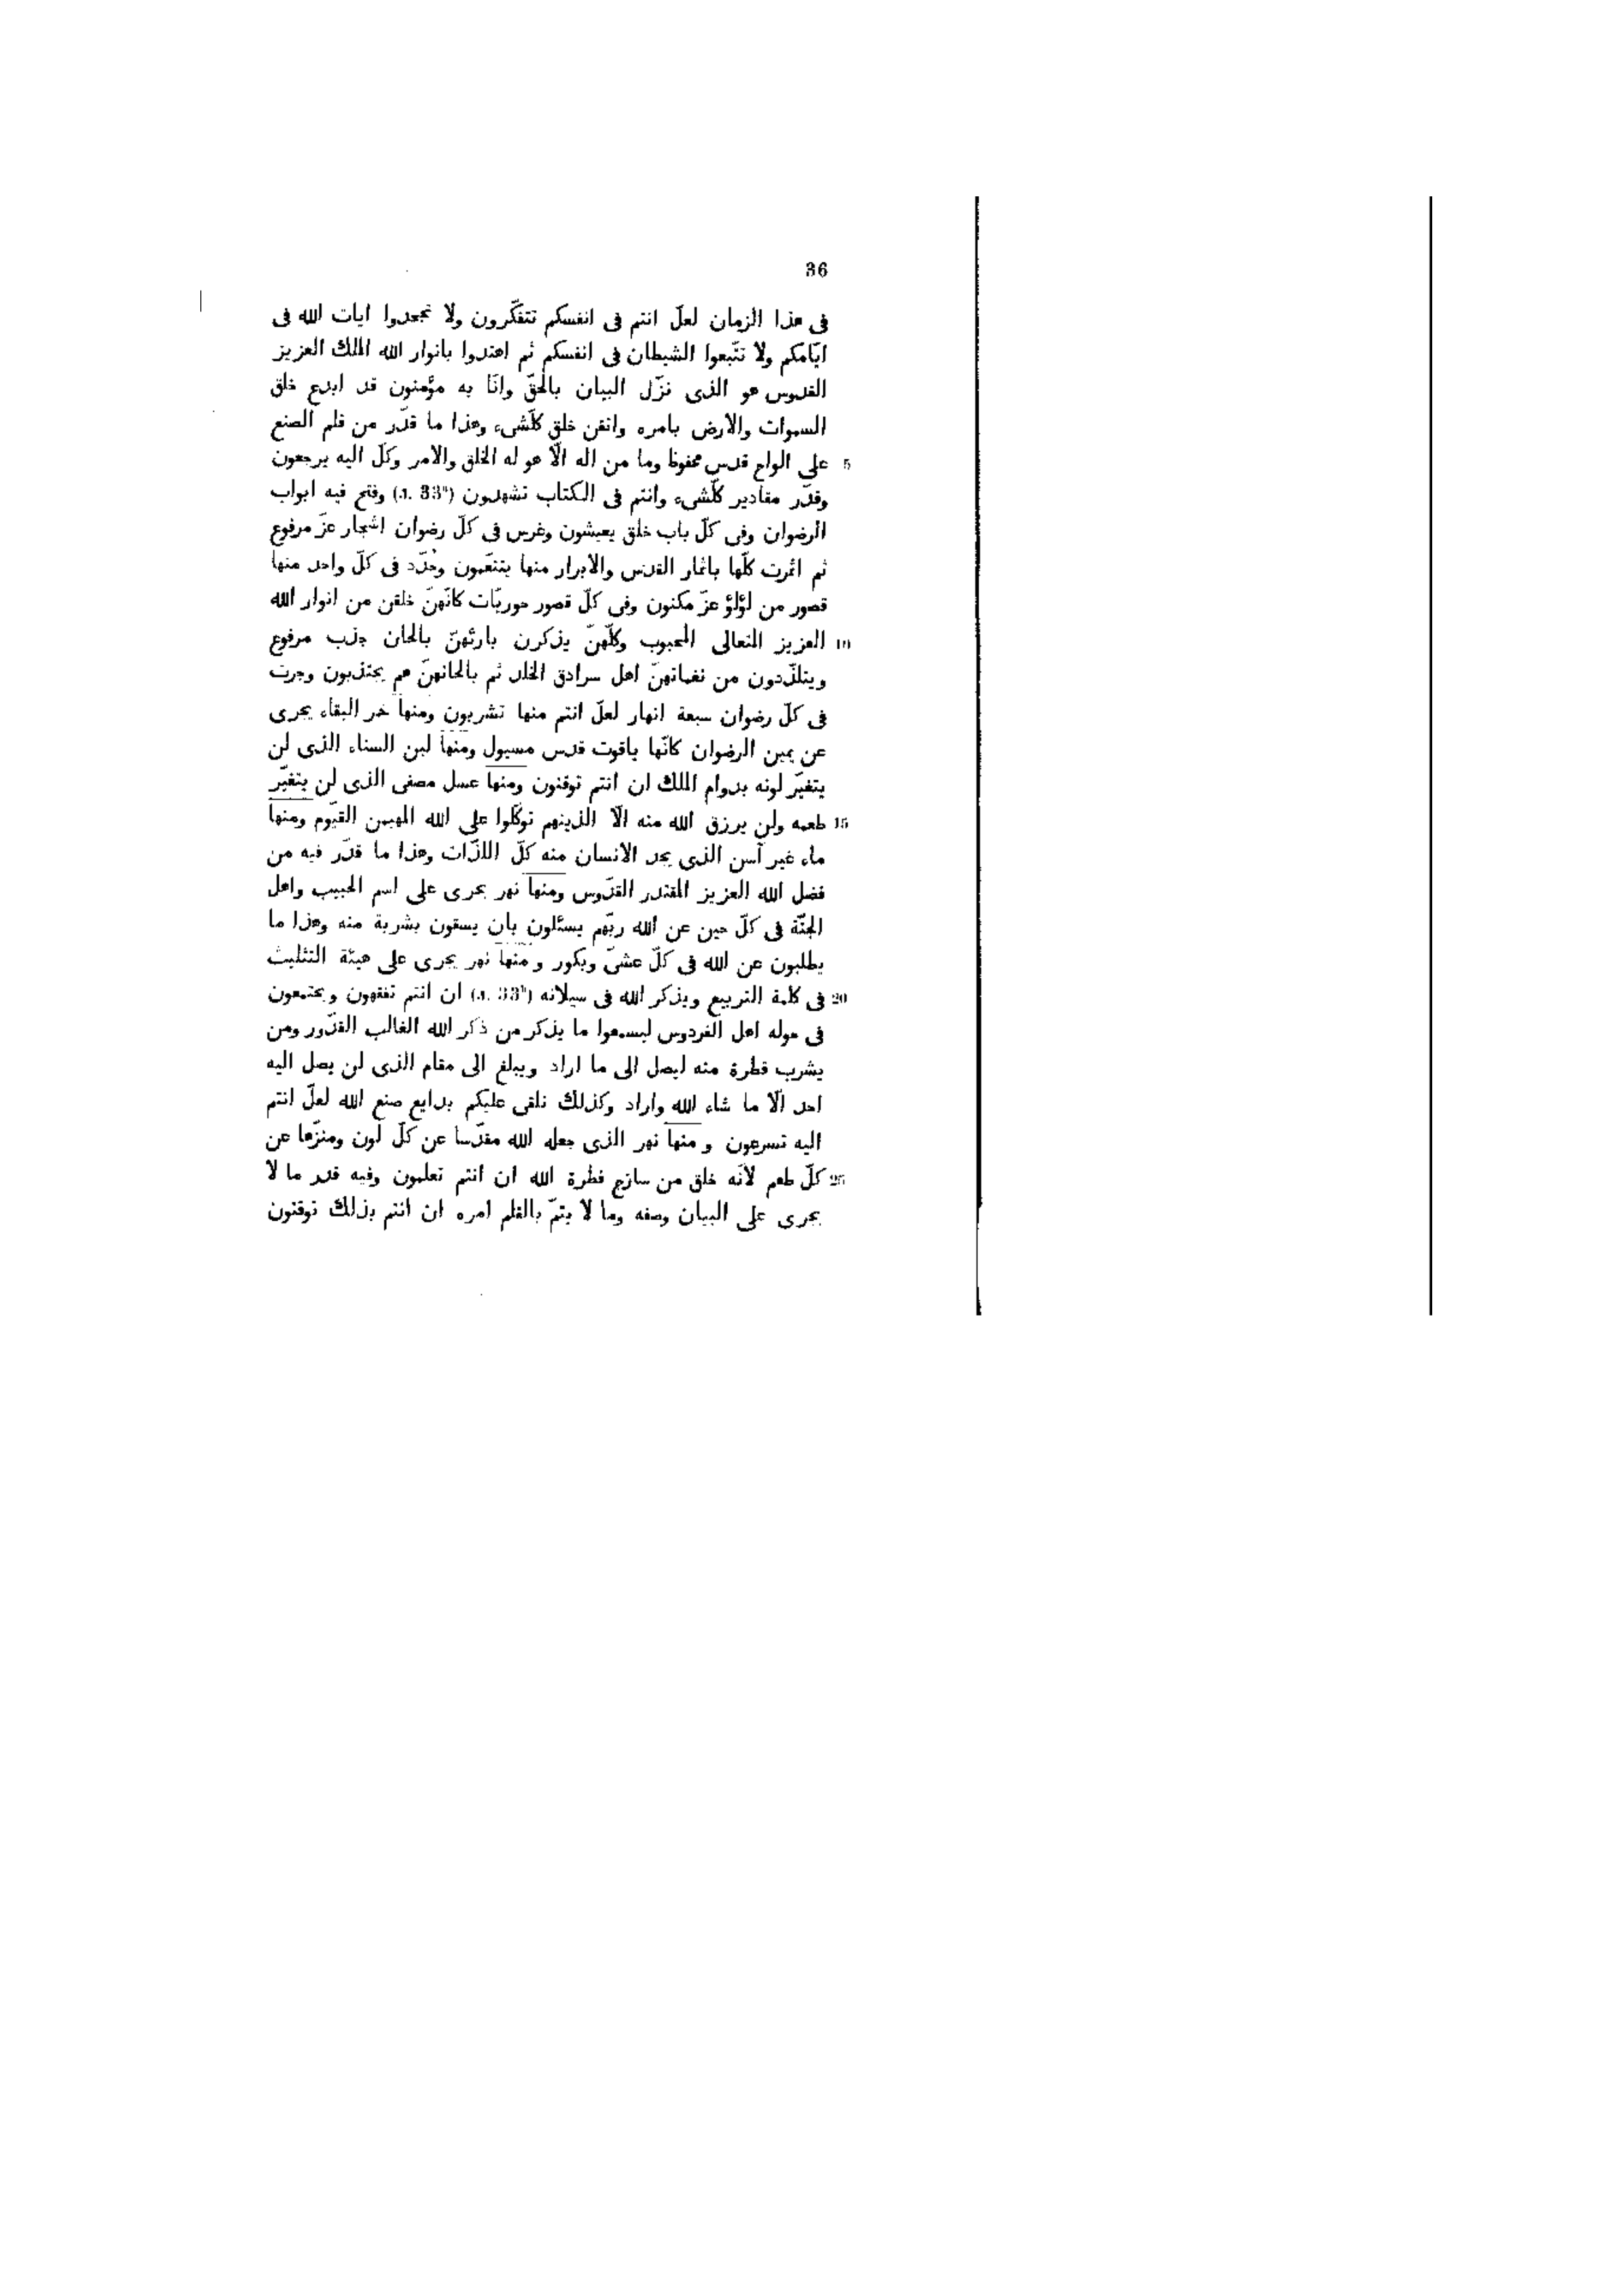 36
فى هذا الزمان لعلّ انتم فى انفسكم تتفكّرون ولا تجحدوا ايات الله فى
ايّامكم ولا تتّبعوا الشيطان فى انفسكم ثم اهتدوا بانوار الله الملك العزيز
القدوس هو الذى نزّل البيان بالحقّ وانّا به مؤمنون قد ابدع خلق
السموات والارض بامره واتقن خلق كلّشىء وهذا ما قدّر من قلم الصنع
5 على الواح قدس محفوظ وما من اله الّا هو له الخلق والامر وكلّ اليه يرجعون
وقدّر مقادير كلّشىء وانتم فى الكتاب تشهدون (л. 33ᵃ) وفتح فيه ابواب
الرضوان وفى كلّ باب خلق يعيشون وغرس فى كلّ رضوان اشجار عزّ مرفوع
ثم اثمرت كلّها باثمار القدس والابرار منها يتنعّمون وحُدّد فى كلّ واحد منها
قصور من لؤلؤ عزّ مكنون وفى كلّ قصور حوريّات كانّهنّ خلقن من انوار الله
10 العزيز المتعالى المحبوب وكلّهنّ يذكرن بارئهنّ بالحان جذب مرفوع
ويتلذّدون من نغماتهنّ اهل سرادق الخلد ثم بالحانهنّ هم يجتذبون وجرت
فى كلّ رضوان سبعة انهار لعلّ انتم منها تشربون ومنها خمر البقاء يجرى
عن يمين الرضوان كانّها ياقوت قدس مسيول ومنها لبن السناء الذى لن
يتغيّر لونه بدوام الملك ان انتم توقنون ومنها عسل مصفى الذى لن يتغيّر
15 طعمه ولن يرزق الله منه الّا الذينهم توكّلوا على الله المهيمن القيّوم ومنها
ماء غير آسن الذى يجد الانسان منه كلّ اللذّات وهذا ما قدّر فيه من
فضل الله العزيز المقتدر القدّوس ومنها نهر يجرى على اسم الحبيب واهل
الجنّة فى كلّ حين عن الله ربّهم يسئلون بان يسقون بشربة منه وهذا ما
يطلبون عن الله فى كلّ عشىّ وبكور ومنها نهر يجرى على هيئة التثليث
20 فى كلمة التربيع ويذكر الله فى سيلانه (л. 33ᵇ) ان انتم تفقهون ويجتمعون
فى حوله اهل الفردوس ليسمعوا ما يذكر من ذكر الله الغالب القدّور ومن
يشرب قطرة منه ليصل الى ما اراد ويبلغ الى مقام الذى لن يصل اليه
احد الّا ما شاء الله واراد وكذلك نلقى عليكم بدايع صنع الله لعلّ انتم
اليه تسرعون ومنها نهر الذى جعله الله مقدّسا عن كلّ لون ومنزّها عن
25 كلّ طعم لانّه خلق من سازج فطرة الله ان انتم تعلمون وفيه قدر ما لا
يجرى على البيان وصفه وما لا يتمّ بالقلم امره ان انتم بذلك توقنون